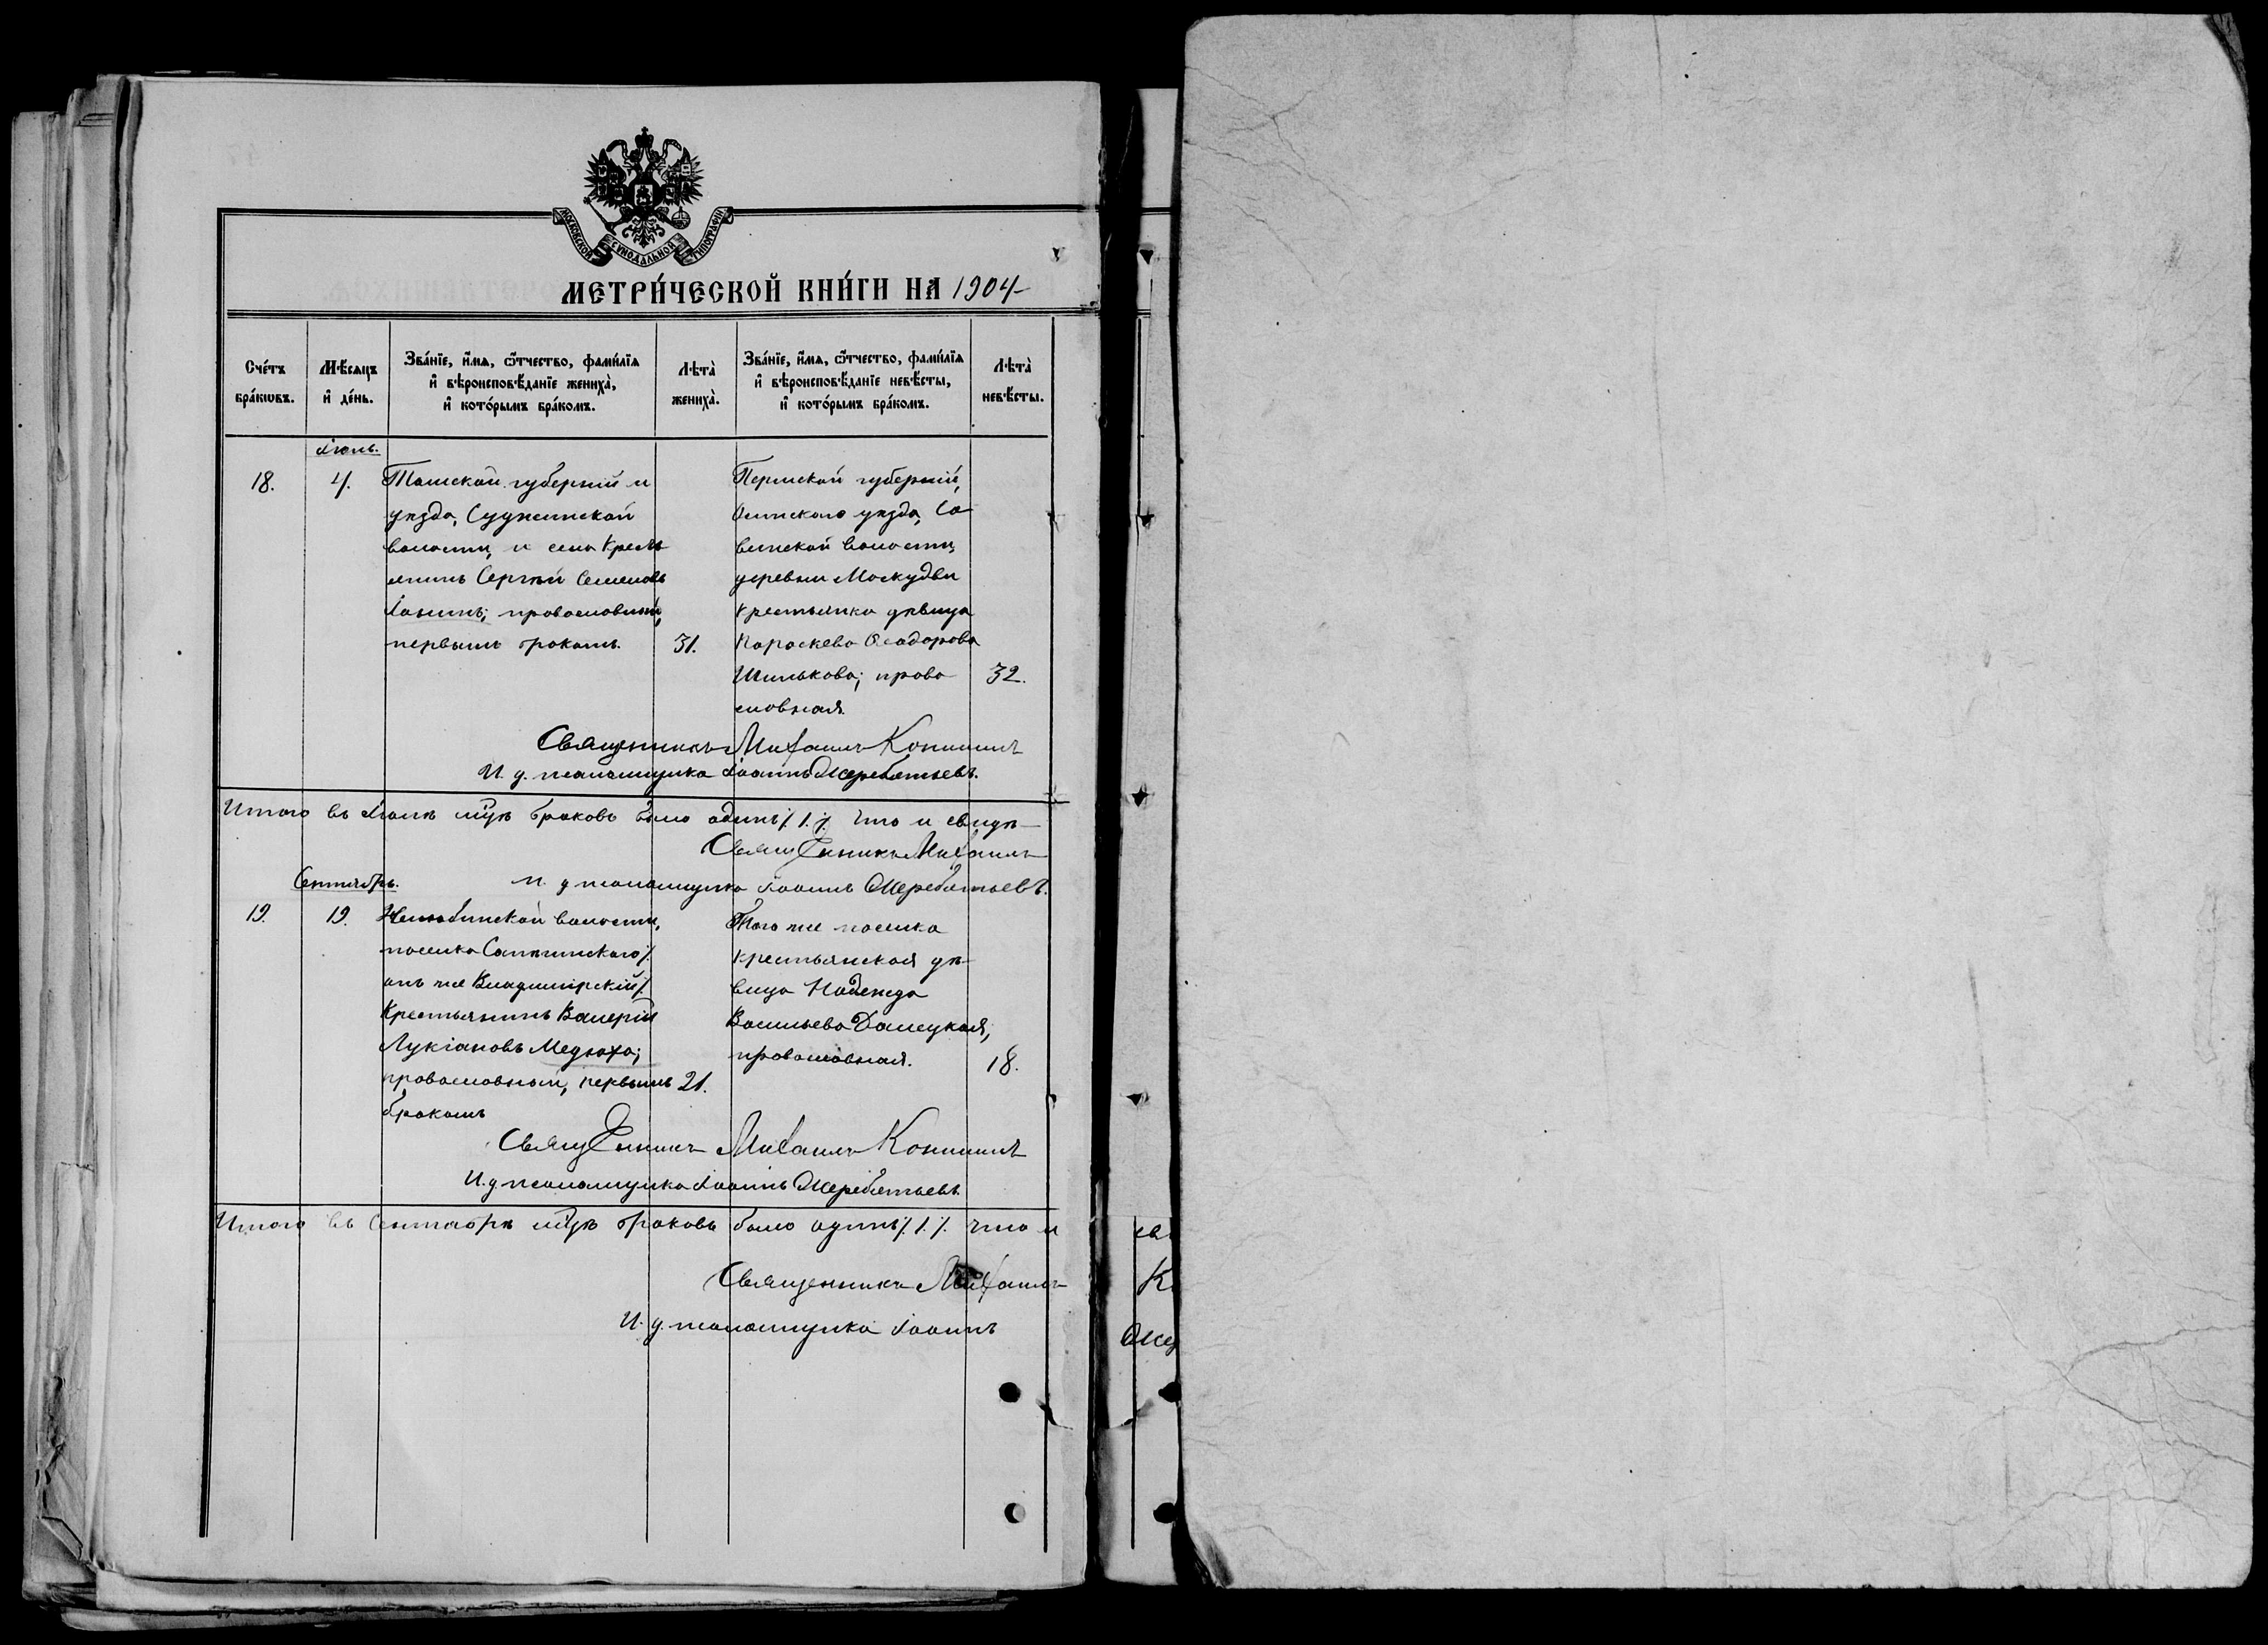 МОСКОВСКОЙ СѴНОДАЛЬНОЙ ТИПОГРАФІИ
МЕТРИ́ЧЕСКОЙ КНИ́ГИ НА 1904
Сче́тъ бра́кωвъ.
Мѣ́сяцъ и҆ де́нь.
Зва́нїе, и҆́мѧ, ѻ҆́тчество, фами́лїѧ
и҆ вѣроисповѣ́данїе жениха̀,
и҆ кото́рымъ бра́комъ.
Лѣта̀ жениха̀.
Зва́нїе, и҆́мѧ, ѻ҆́тчество, фами́лїѧ
и҆ вѣроисповѣ́данїе невѣ́сты,
и҆ кото́рымъ бра́комъ.
Лѣта̀ невѣ́сты.
Іюль.
18.
4.
Томской губерніи и
уѣзда, Судженской
волости, и села Кресть
янинъ Сергѣй Семеновъ
православный,
первымъ бракомъ.
31.
Пермской губерніи,
Осинскаго уѣзда, Са
винской волости,
деревни Москудьи
крестьянка дѣвица
Параскева Ѳеодорова
Шилькова; право
славная.
32.
Священникъ Михаилъ Конининъ
И. д. псаломщика Іоаннъ Жеребятьевъ.
Итого въ Іюлѣ м͠цѣ браковъ было одинъ /. 1. /. что и свидѣ
Священникъ Михаилъ
и. д псаломщика Іоаннъ Жеребятьевъ.
Сентябрь.
19.
19.
Нелюбинской волости,
поселка Саптинскаго /.
онъ же Владимірскій /.
Крестьянинъ Валерій
Лукіановъ Медюха;
православный, первымъ
бракомъ
21.
Того же поселка
крестьянская дѣ
вица Надежда
Васильева Далецкая,
православная.
18.
Священникъ Михаилъ Конининъ
И. д псаломщика Іоаннъ Жеребятьевъ.
Итого въ Сентябрѣ м͠цѣ браковъ было одинъ /. 1. /. что и
Священникъ Михаилъ
И. д. псаломщика Іоаннъ